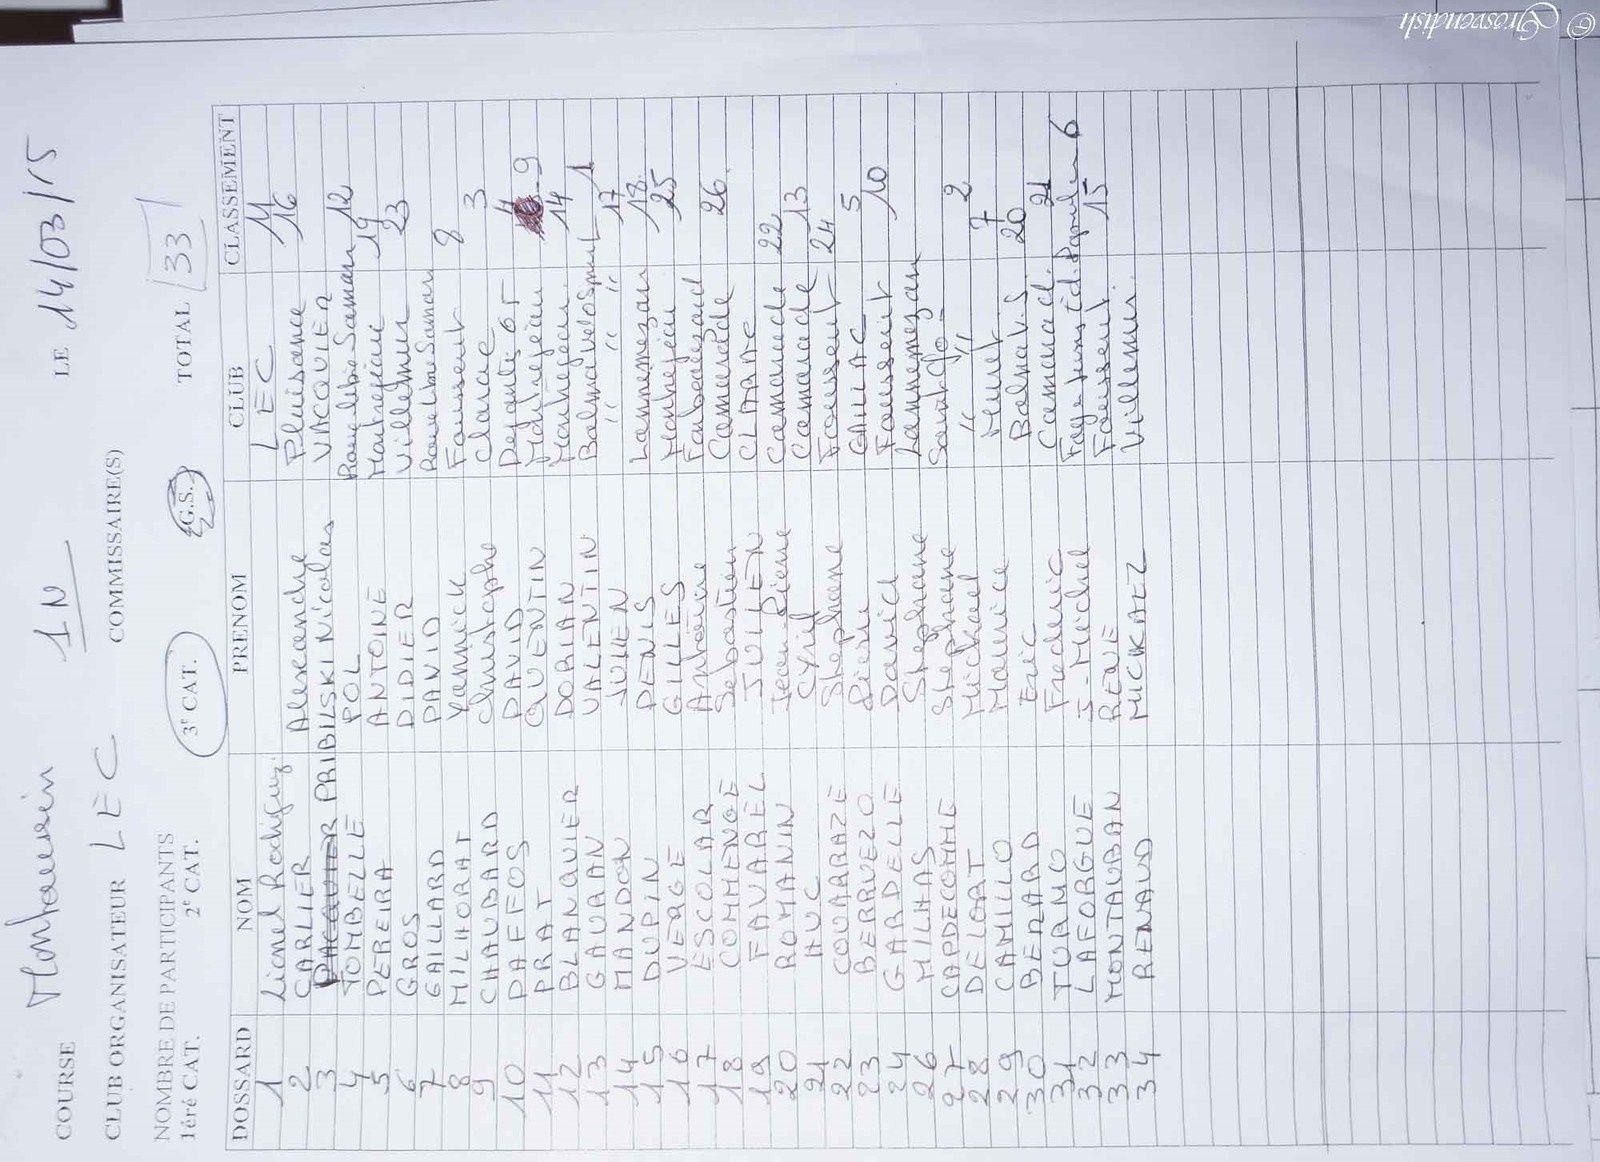 COURSE Montaurin 1N LE 14/03/15
CLUB ORGANISATEUR LEC COMMISSAIRE(S)
NOMBRE DE PARTICIPANTS
1éré CAT. 2e CAT. 3e CAT. G.S. TOTAL 33
DOSSARD NOM PRENOM CLUB CLASSEMENT
1 Lionel Rodiguz. LEC 11
2 CARLIER Alexandre Plaisance 16
3 PRIBILSKI Nicolas VACQUIER
4 TOMBELLE POL 12
5 PEREIRA ANTOINE Montrejeau 19
6 GROS DIDIER Villemur 23
7 GAILLARD DAVID
8 MILHORAT Yannick Fousseret 8
9 CHAUBARD Christophe Clarac 3
10 DAFFOS DAVID 4
11 PRAT QUENTIN Montrejeau 9
12 BLANQUIER DORIAN Montrejeau. 14
13 GAURAN VALENTIN 1
14 MANDON JULIEN " " " " 17
15 DUPIN DENIS Lannemezan 18
16 VERGE GILLES Montrejeau 25
17 ESCOLAR Antoine
18 COMMENGE Sebastien 26
19 FAVAREL JULIEN CLARAC
20 ROMANIN Jean Pierre 22
21 HUC Cyril 13
22 COUARRAZE Stephane Fousseret 24
23 BERRUEZO Pierre GAILLAC 5
24 GARDELLE David Fousseret 10
26 MILHAS Stephane Lannemezan
27 CAPDECOMME Stephane 2
28 DELORT Michael " "
29 CAMILLO Maurice Muret 7
30 BEZARD Eric Balma V.S 20
31 TURNO Frederic 21
32 LAFORGUE J-Michel 6
33 MONTAUBAN RENE Fousseret. 15
34 RENAUD MICKAEL Villemur.
© Grosvendish